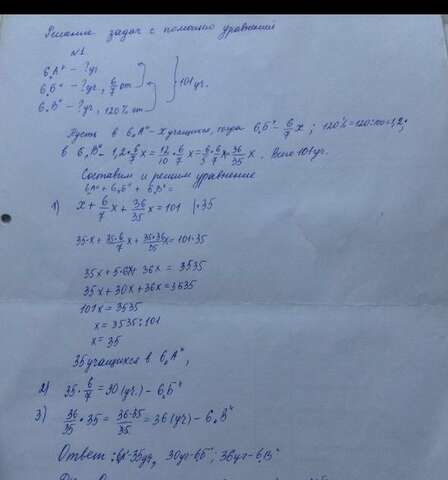 Решение задач с помощью уравнений
№1
6„А" - ? уч.
6„Б" - ? уч., 6/7 от
6„В" - ? уч., 120% от
101 уч.
Пусть в 6„А" - x учащихся, тогда 6„Б" - 6/7 x ; 120% = 120:100 = 1,2;
в 6„В" - 1,2 · 6/7 x = 12/10 · 6/7 x = 6/5 · 6/7 x = 36/35 x . Всего 101 уч.
Составим и решим уравнение
6А" + 6„Б" + 6„В" =
1) x + 6/7 x + 36/35 x = 101 | · 35
35·x + 35·6/7 x + 35·36/35 x = 101·35
35x + 5·6x + 36x = 3535
35x + 30x + 36x = 3535
101x = 3535
x = 3535:101
x = 35
35 учащихся в 6„А",
2) 35 · 6/7 = 30 (уч.) - 6„Б"
3) 36/35 · 35 = 36·35/35 = 36 (уч) - 6„В"
Ответ: 6А" - 35уч, 30уч - 6Б", 36уч - 6„В"